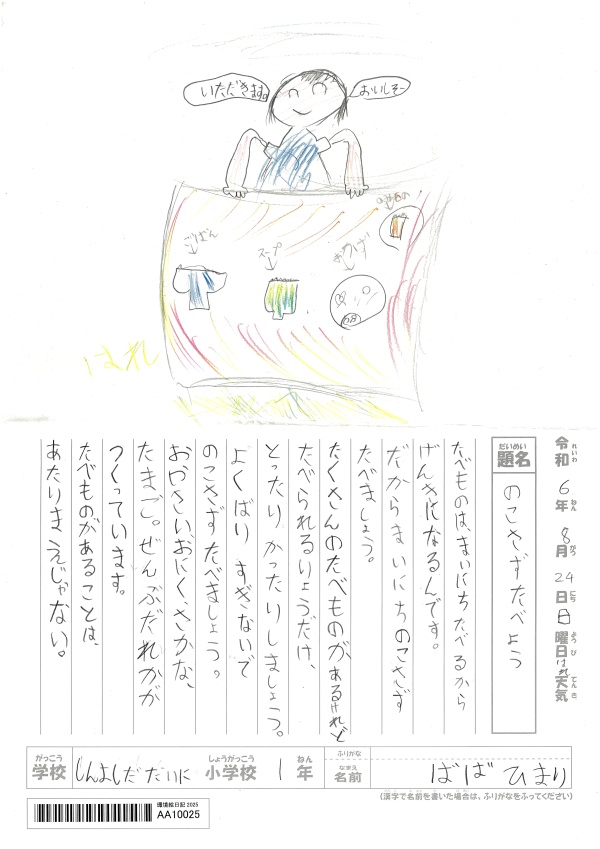 いただきます。
おいしそー
ごはん
スープ
はれ
令和 れいわ 6年 ねん 8月 がつ 24日 にち 日曜日 ようび はれ 天気 てんき
だいめい
題名
のこさずたべよう
たべものは、まいにちたべるから
げんきになるんです。
だからまいにちのこさず
たべましょう。
たくさんのたべものがあるけれど
たべられるりょうだけ、
とったりかったりしましょう。
よくばりすぎないで
のこさずたべましょう。
おやさい、おにく、さかな、
たまご。ぜんぶだれかが
つくっています。
たべものがあることは、
あたりまえじゃない。
がっこう 学校 しんよしだだいに 小学校 しょうがっこう 1年 ねん
ふりがな
なまえ 名前 ばば ひまり
(漢字で名前を書いた場合は、ふりがなをふってください)
環境絵日記 2025
AA10025